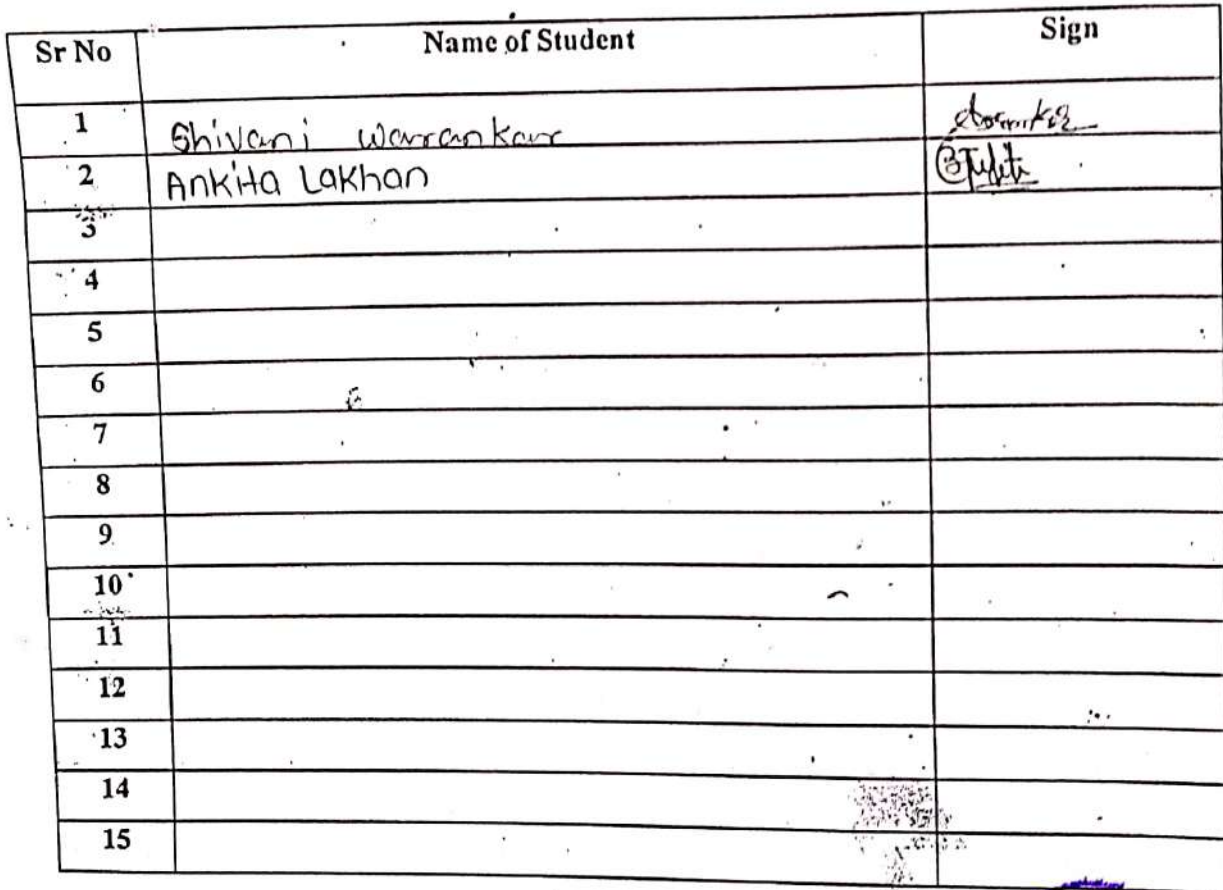 Sr No Name of Student Sign
1 Shivani Warankar
2 Ankita Lakhan
3
4
5
6
7
8
9
10
11
12
13
14
15